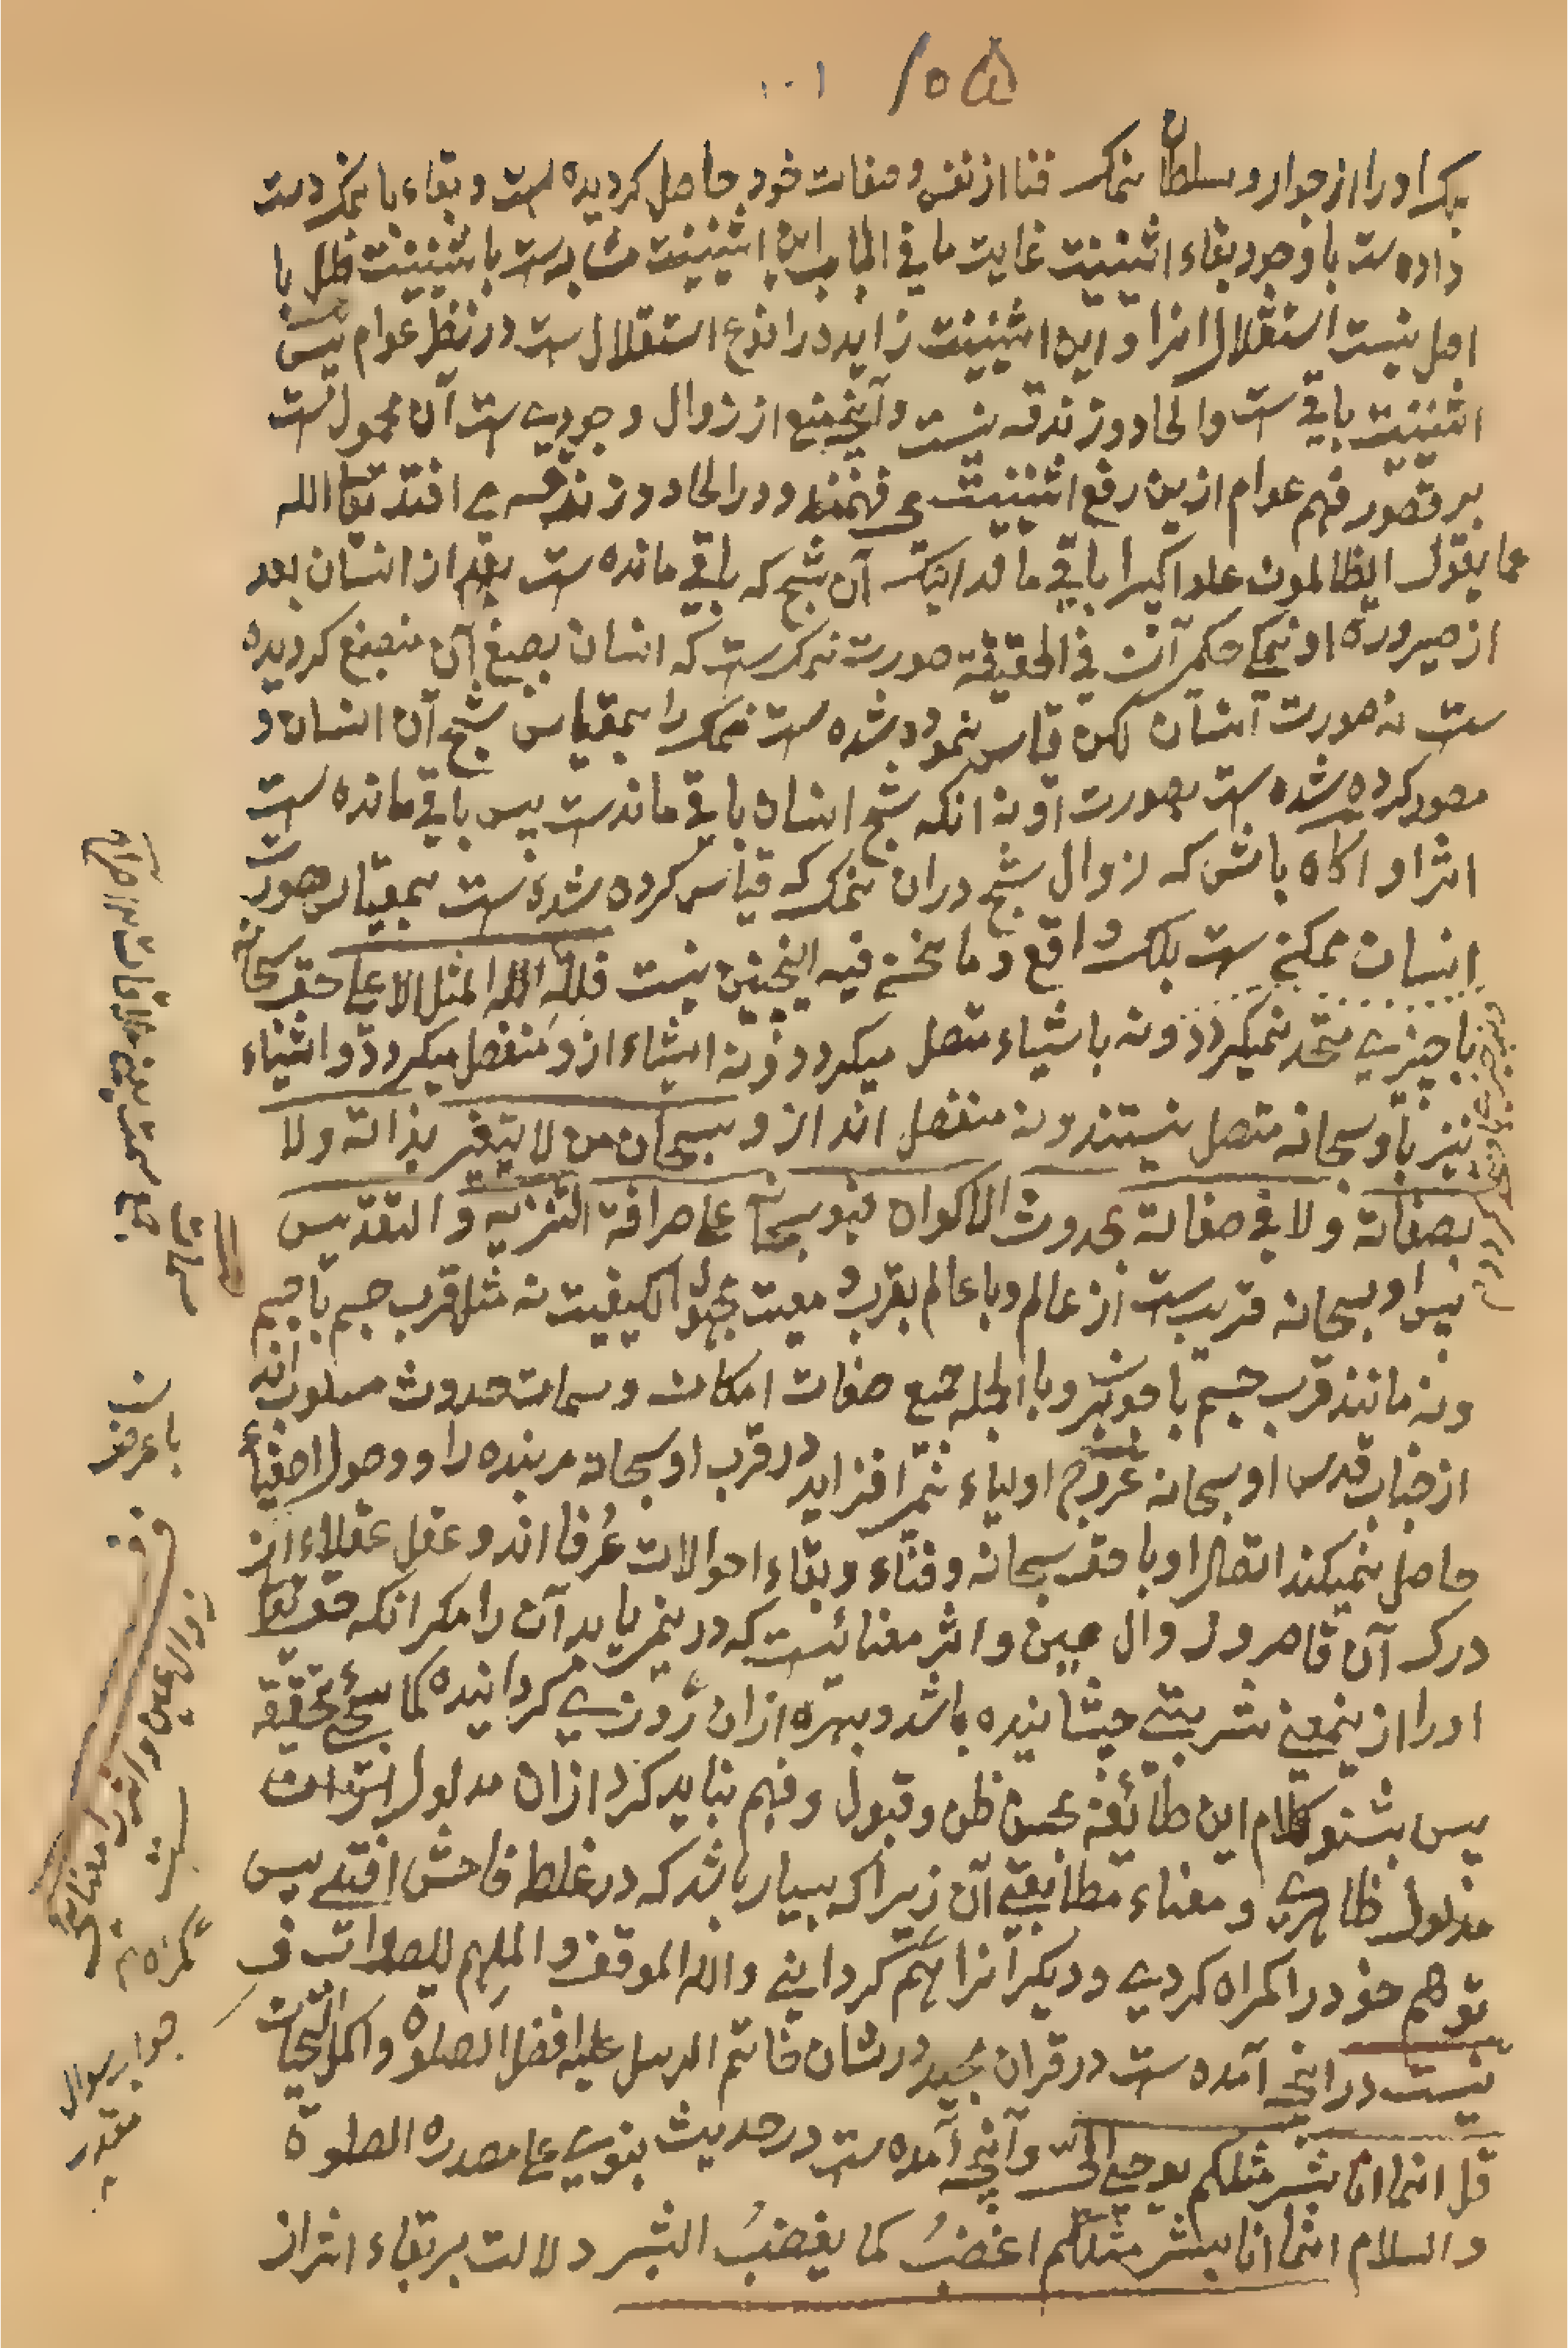 ۱۵۵ ۱۰۰
بلکه او را از جوار و سلطان نمک فنا از نفس و صفات خود حاصل کردیده است و بقاء با نمک دست
داده ست باوجود بقاء اثنینیت غایت ما فی الباب این اثنینیت مشابه ست باثنینیت ظل با
اصل نیست استقلال انرا و این اثنینیت زاید در انوع استقلال ست در نظر عوام پس
اثنینیت باقی ست و الحاد و زندقه نیست و آنچه منع از زوال وجودی ست آن محمول ست
بر قصور فهم عوام ازین رفع اثنینیت می فهمند و در الحاد و زندقه می افتد تعالی الله
عما یقول الظالمون علوا کبیرا باقی ماند اینکه آن شبح که باقی مانده ست بعد از انسان بعد
از صیرورة او نمک حکم آن فی الحقیقة صورت نمک ست که انسان بصبغ آن منصبغ کردیده
ست نه صورت انسان لکن قیاس نموده شده ست نمک را بمقیاس شبح آن انسان و
مصور کرده شده ست بصورت او نه انکه شبح انسان باقی ماندست پس باقی مانده ست
اثر او اکاه باش که زوال شبح دران نمک که قیاس کرده شده ست بمقیاس صورت
انسان ممکن ست بلک واقع و ما نحن فیه اینچنین نیست فلله المثل الاعلی حق سبحانه
با چیزی متحد نمیکردد و نه باشیاء متصل میکردد و نه اشیاء ازو منفصل میکردد و اشیاء
نیز باو سبحانه متصل نیستند و نه منفصل اند ازو سبحان من لا یتغیر بذاته ولا
بصفاته ولا فی صفاته بحدوث الاکوان فهو سبحانه علی صرافة التنزیه و التقدیس
پس او سبحانه قریب ست از عالم و با عالم بقرب و معیت مجهول الکیفیت نه مثل قرب جسم با جسم
و نه مانند قرب جسم با جوهر و با الجمله جمیع صفات امکان و سمات حدوث مسلوب اند
از جناب قدس او سبحانه عروج اولیاء نمی افزاید در قرب او سبحانه مر بنده را و وصول اصفیاء
حاصل نمیکند اتصال او با حق سبحانه و فناء و بقاء احوالات عرفا اند و عقل عقلاء از
درک آن قاصر و زوال عین و اثر معنائیست که در نمی یابد آن را مکر انکه حق تعالی
اورا ازینمعنی شربتی چشانیده باشد و بهره ازان روزی کردانیده کما سیجئ تحقیقه
پس بشنو کلام این طائفه بحسن ظن و قبول و فهم نباید کرد ازان مدلول
مدلول ظاهری و معناء مطابقی آن زیراکه بسیار باشد که در غلط فاحش افتی پس
تو هم خود را کمراه کردی و دیکر انرا هم کردانی والله الموفق و الملهم للصواب ف
نیست در انچه آمده ست در قران مجید در شان خاتم الرسل علیه افضل الصلوة و اکمل التحیات
قل انما انا بشر مثلکم یوحی الی و آنچه آمده ست در حدیث نبوی علی مصدره الصلوة
و السلام انما انا بشر مثلکم اغضب کما یغضب البشر دلالت بر بقاء اثر از
زوال عین و اثر را معنا
جواب سوال
مقدر